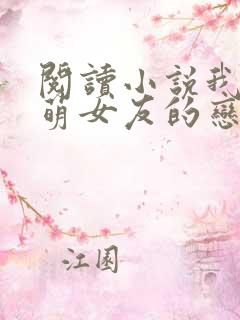 閱讀小說我
萌女友的戀
江園